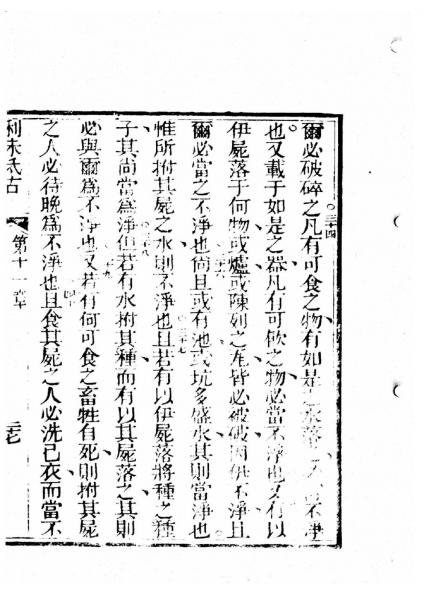 爾必破碎之凡有可食之物有如是之水落不淨
也又載于如是之器凡有可飲之物必當不淨也又有以
伊屍落于何物或爐或陳列之瓦皆必被破因伊不淨且
爾必當之不淨也尚且或有池或坑多盛水其則當淨也
惟所拊其屍之水則不淨也且若有以伊屍落將種之種
子其尚當為淨但若有水拊其種而有以其屍落之其則
必與爾為不淨也又若有何可食之畜牲自死則拊其屍
之人必待晚為不淨也且食其屍之人必洗已衣而當不
利未氏古 第十一章
三十四
三十八
三十九
三十七
四十